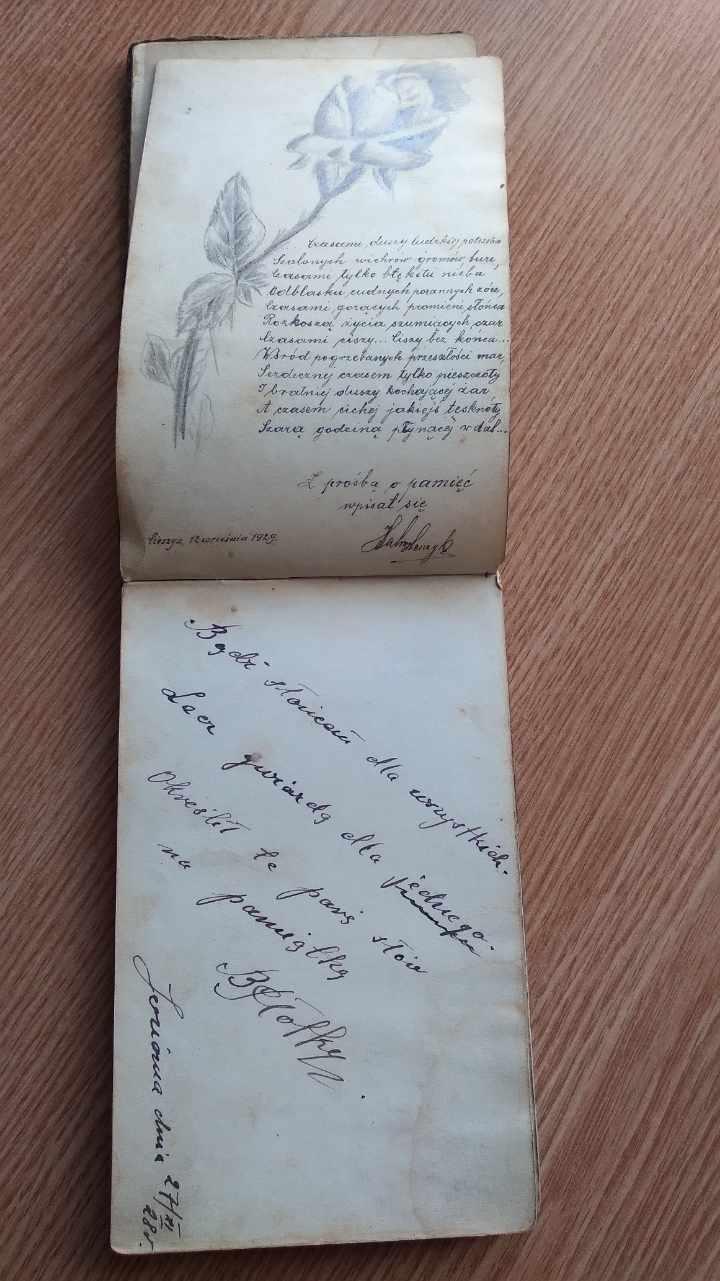 Czasami duszy ludzkiej potrzeba
Szalonych wichrów gromów, burz,
Czasami tylko błękitu nieba
Odblasku cudnych porannych zórz,
Czasami gorących promieni słońca
Rozkoszą życia szumiących czar
Czasami ciszy... Ciszy bez końca...
Wśród pogrzebanych przeszłości mar,
Serdecznej czasem tylko pieszczoty
I bratniej duszy kochającej żar
A czasem cichej jakiejś tęsknoty
Szarą godziną płynącej w dal...
Z prośbą o pamięć
wpisał się
12 września 1929.
Bądź słońcem dla wszystkich.
Lecz gwiazdą dla jednego.
Określił te parę słów
na pamiątkę
dnia 27/XI 28r.